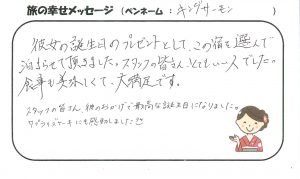 旅の幸せメッセージ（ペンネーム：キングサーモン）
彼女の誕生日のプレゼントとして、この宿を選んで
泊まらせて頂きました。スタッフの皆さん、とてもいい人でした。
食事も美味しくて、大満足です。
スタッフの皆さん、彼のおかげで最高な誕生日になりました。
サプライズケーキにも感動しました